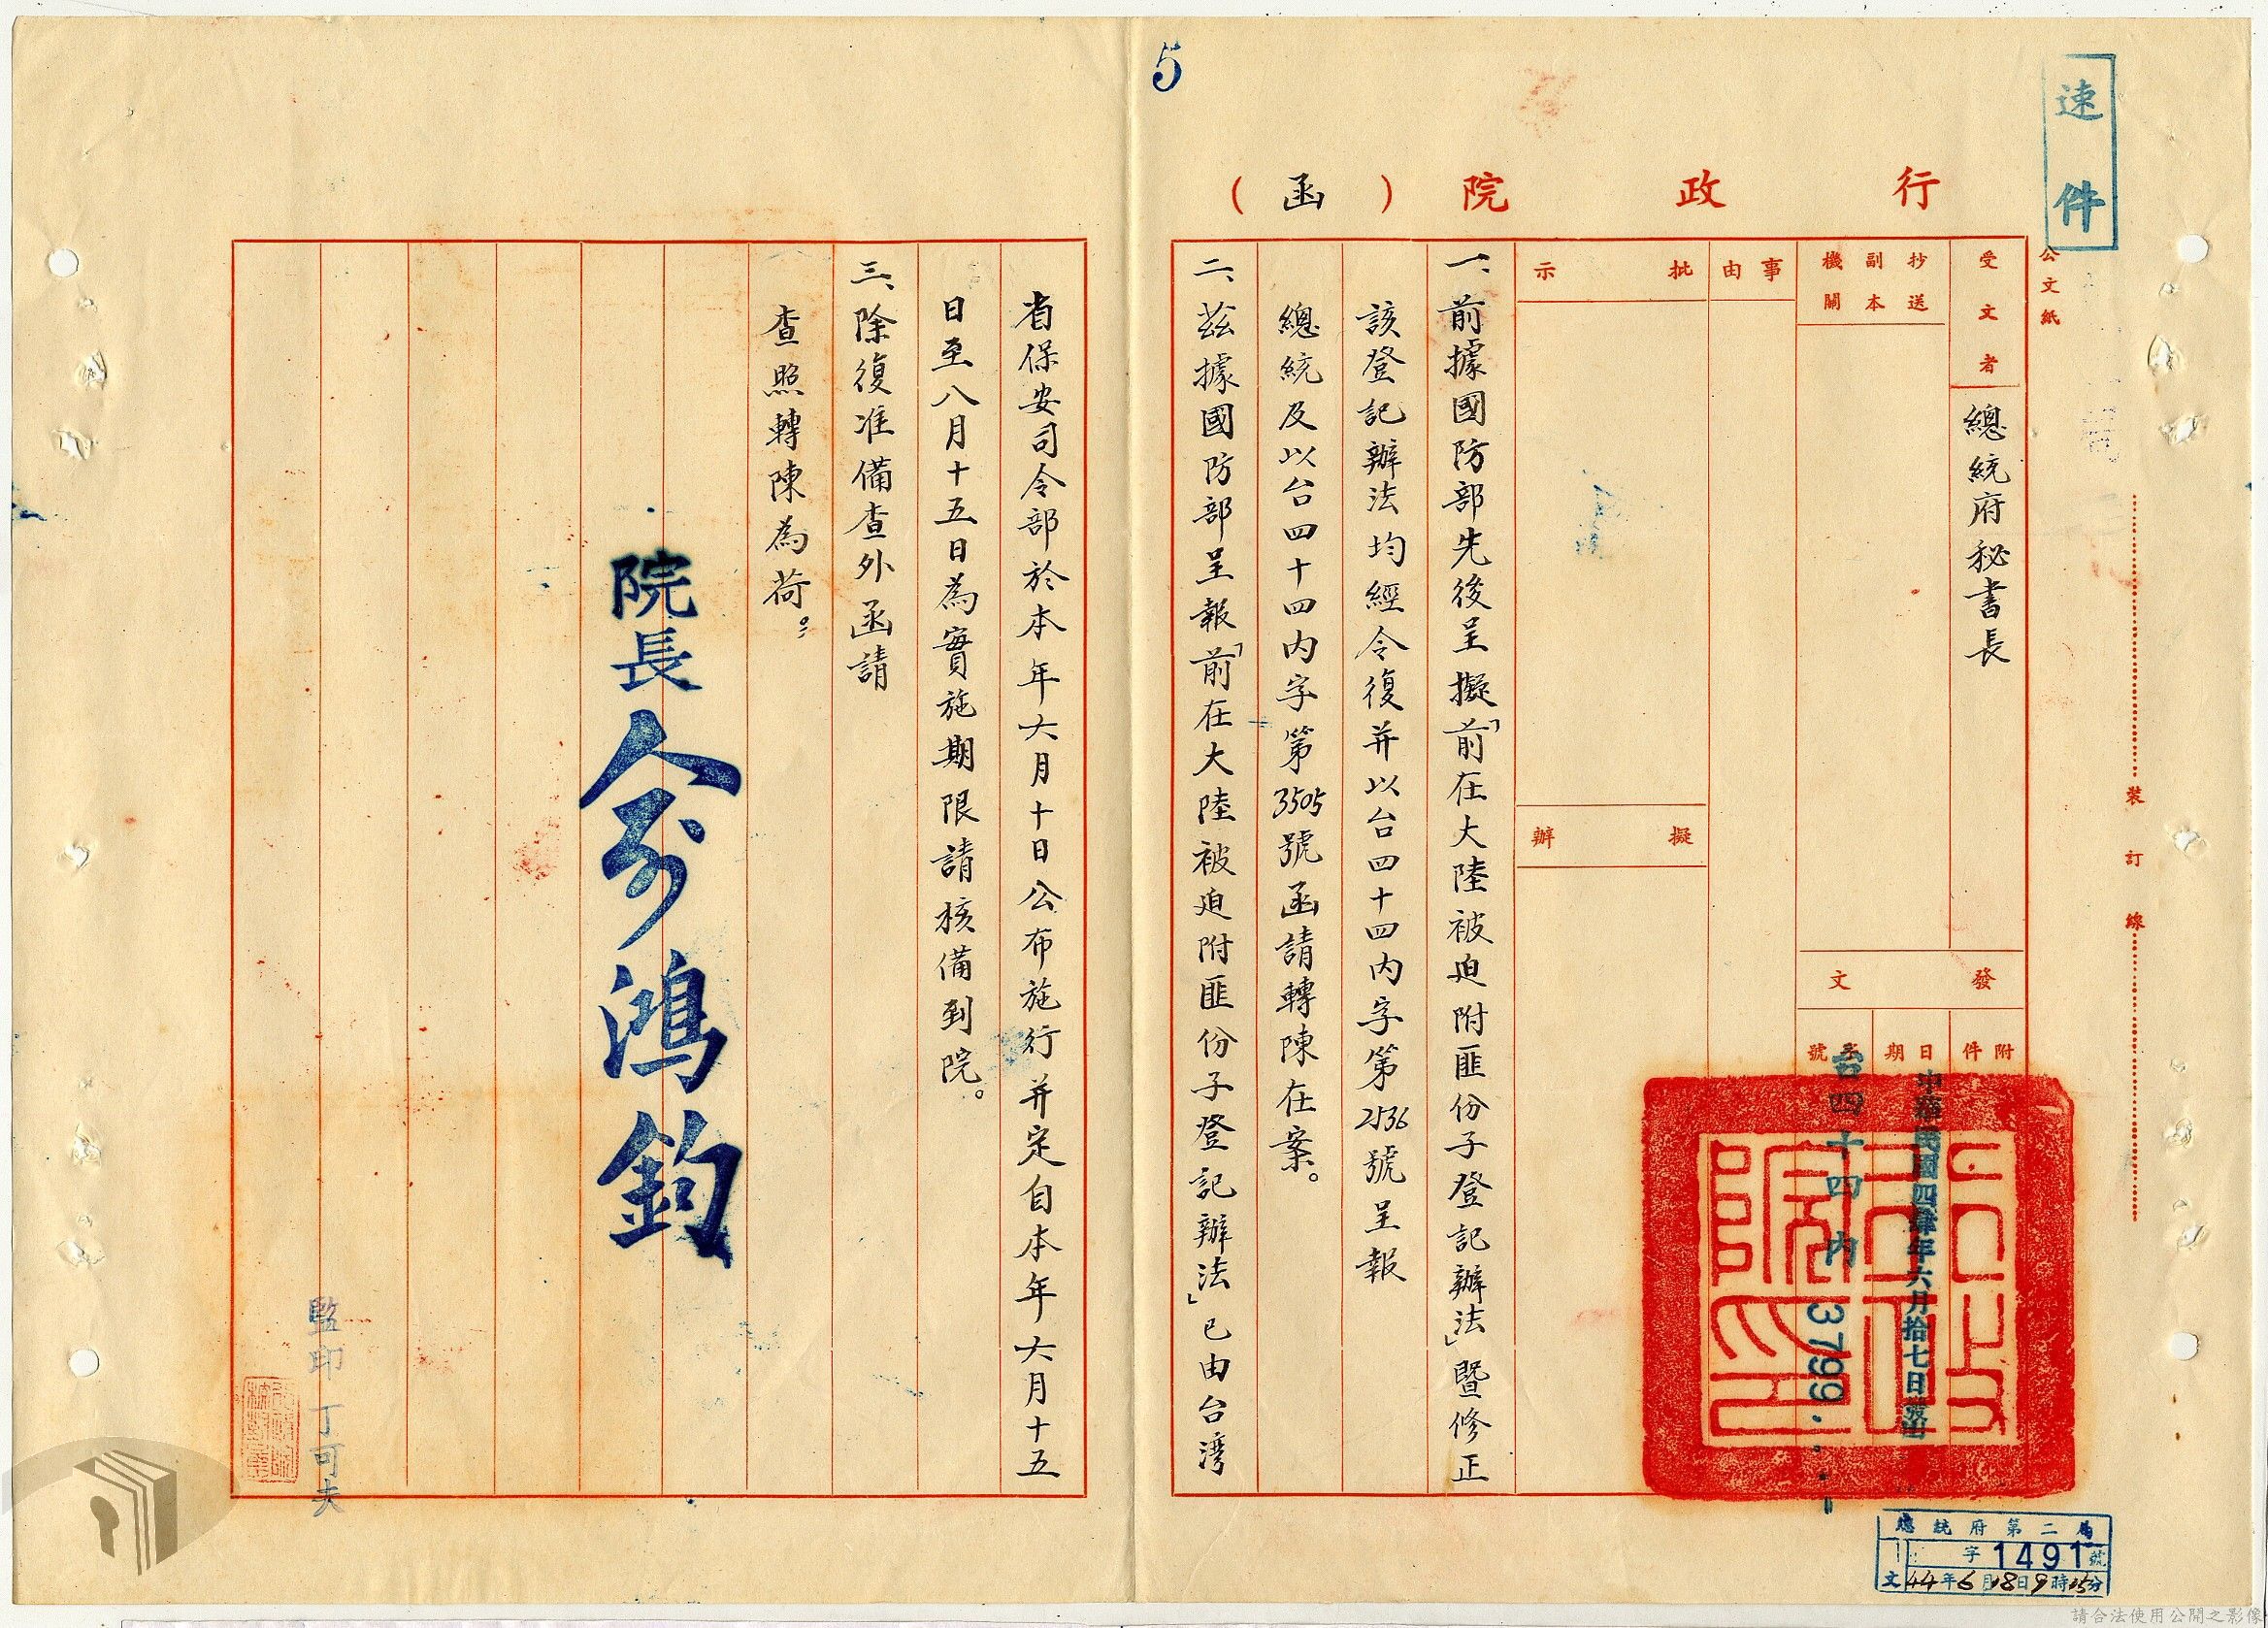 速件
5
行政院（函）
公文紙
受文者
總統府秘書長
抄送副本機關
事由
批示
擬辦
發文
附件
日期
字號
中華民國四肆年六月拾七日發出
台四十四內3799
裝訂線
一、前據國防部先後呈擬「前在大陸被迫附匪份子登記辦法」暨修正
該登記辦法均經令復并以台四十四內字第2536號呈報
總統及以台四十四內字第3505號函請轉陳在案。
二、茲據國防部呈報「前在大陸被迫附匪份子登記辦法」已由台灣
省保安司令部於本年六月十日公布施行并定自本年六月十五
日至八月十五日為實施期限請核備到院。
三、除復准備查外函請
查照轉陳為荷。
院長俞鴻鈞
監印丁可夫
行政院印
總統府第二局
字1491號
文44年6月18日9時15分
請合法使用公開之影像